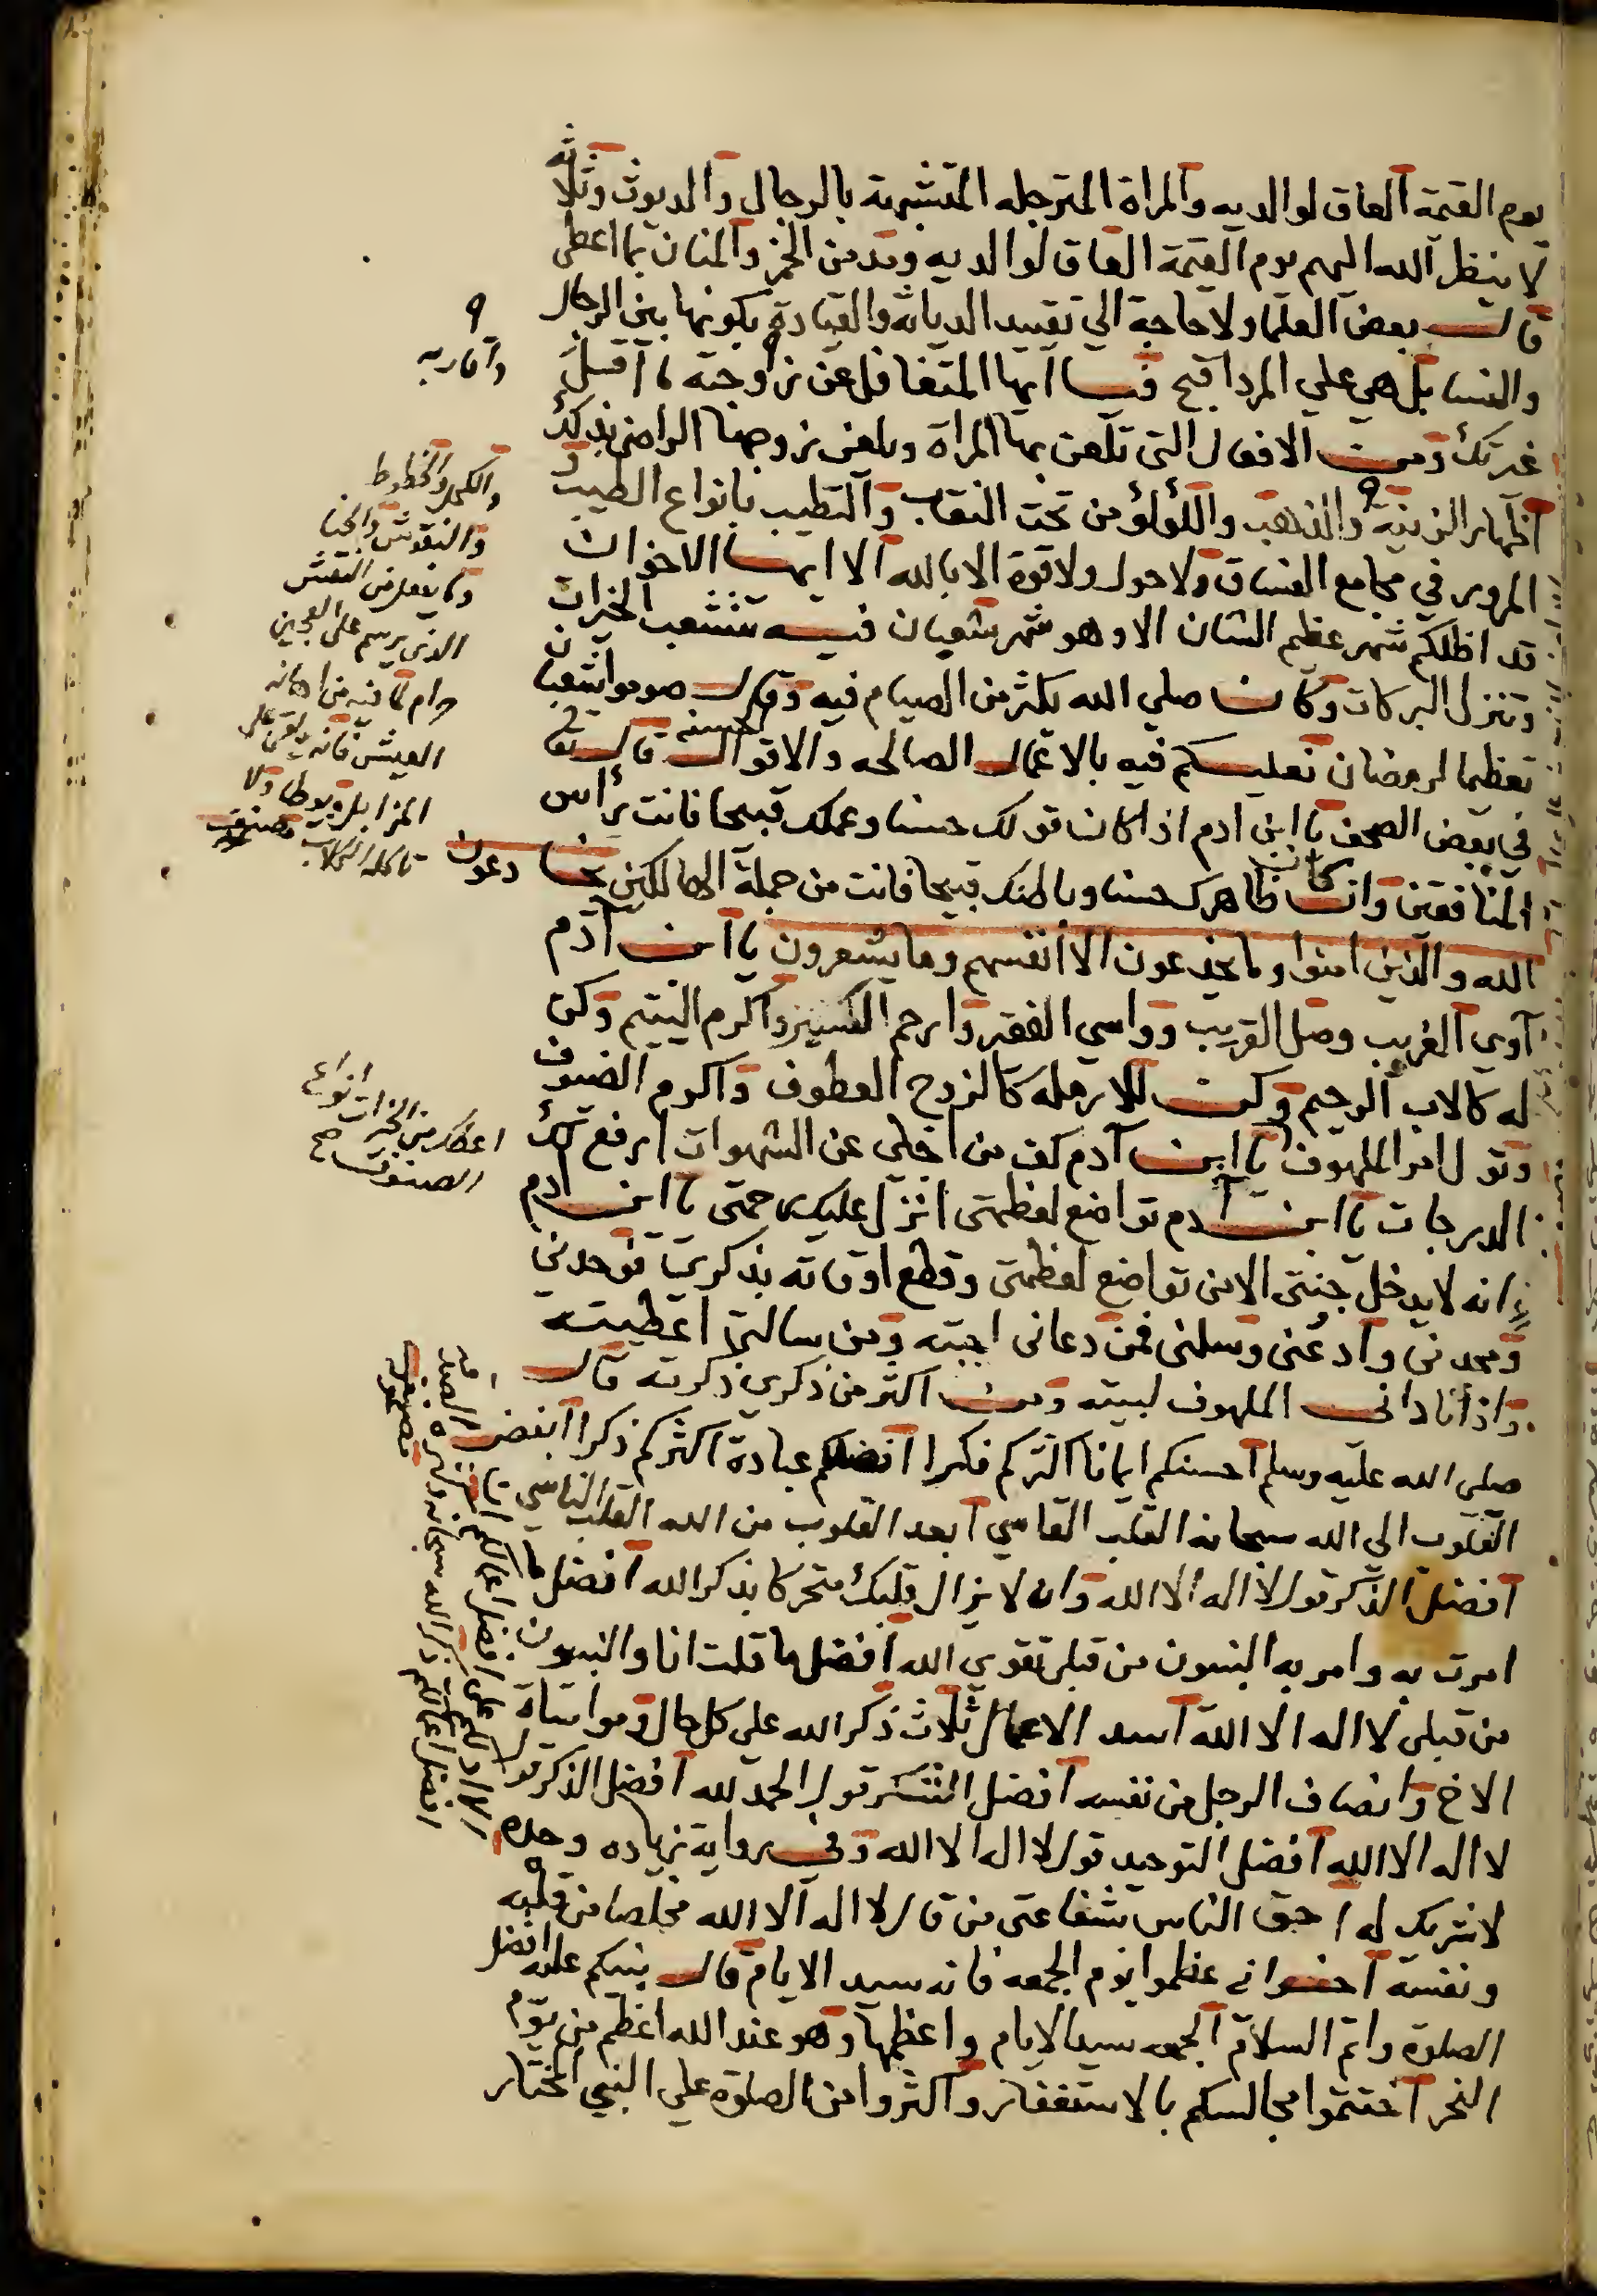 يوم القيمة العاق لوالديه والمراة المترجله المتشبهة بالرجال والديوث وثلاثه
لا ينظر الله اليهم يوم القيمة العاق لوالديه ومدمن الخمر والمنان بما اعطى
قال بعض العلما ولا حاجة الي تقييد الدياثه والقيادة بكونها بين الرجال
والنسا بل هي علي المرد اقبح فيا ايها المتغافل عن زوجته ما اقل
غيرتك ومن الافعال التي تلعن بها المراة ويلعن زوجها الراضي بذلك
اظهار الزينة والذهب واللؤلؤ من تحت النقاب والتطيب بانواع الطيب و
المرور في مجامع الفساق ولا حول ولا قوة الا بالله الا ايها الاخوان
قد اظلكم شهر عظيم الشان الا وهو شهر شعبان فيه تتشعب الخيرات
وتنزل البركات وكان صلي الله يكثر من الصيام فيه وقال صوموا شعبان
تعظيما لرمضان فعليكم فيه بالاعمال الصالحه والاقوال الحسنه قال تعا
في بعض الصحف يا ابن ادم اذا كان قولك حسنا وعملك قبيحا فانت راس
المنافقين وان كان ظاهرك حسنا وباطنك قبيحا فانت من جملة الهالكين يخادعون
الله والذين امنوا وما يخدعون الا انفسهم وما يشعرون يا ابن آدم
آوي الغريب وصل القريب وواسي الفقير وارحم الكسير واكرم اليتيم وكن
له كالاب الرحيم وكن للارمله كالزوج العطوف واكرم الضيوف
وتول امر الملهوف يا ابن آدم كف من اجلي عن الشهوات ارفع لك
الدرجات يا ابن آدم تواضع لعظمتي انزل عليك رحمتي يا ابن ادم
انه لا يدخل جنتي الا من تواضع لعظمتي وقطع اوقاته بذكري فوحدني
ومجدني وادعني وسلني فمن دعاني اجبته ومن سالني اعطيته
واذا ناداني الملهوف لبيته ومن اكثر من ذكري ذكرته قال
صلي الله عليه وسلم احسنكم ايمانا اكثركم فكرا افضلكم عبادة اكثركم ذكرا ابغض
القلوب الي الله سبحانه القلب القاسي ابعد القلوب من الله القلب القاسي
افضل الذكر قول لا اله الا الله وان لا يزال قلبك متحركا بذكر الله افضل ما
امرت به وامر به النبيون من قبلي تقوي الله افضل ما قلت انا والنبيون
من قبلي لا اله الا الله اسد الاعمال ثلاث ذكر الله علي كل حال ومواساة
الاخ وانصاف الرجل من نفسه افضل الشكر قول الحمد لله افضل الذكر قول
لا اله الا الله افضل التوحيد قول لا اله الا الله وفي رواية زياده وحده
لا شريك له احق الناس بشفاعتي من قال لا اله الا الله مخلصا من قلبه
ونفسه اخواني عظموا يوم الجمعه فانه سيد الايام قال نبيكم عليه افضل
الصلوة واتم السلام الجمعه سيد الايام واعظمها وهو عند الله اعظم من يوم
النحر اختتموا مجالسكم بالاستغفار واكثروا من الصلوة علي النبي المختار
واقاربه
والكحل والخطوط
والنقوش والحنا
وما يفعل من النقش
الذي يرسم على العجين
حرام لما فيه من اهانه
العيش فانه يلقى على
المزابل ويوطا ولا
تاكله الكلاب
اعطك من الخيرات انواع
الصنوف صح
الا ادلكم على افضل اعمالكم
افضل اعمالكم ذكر الله سبحانه